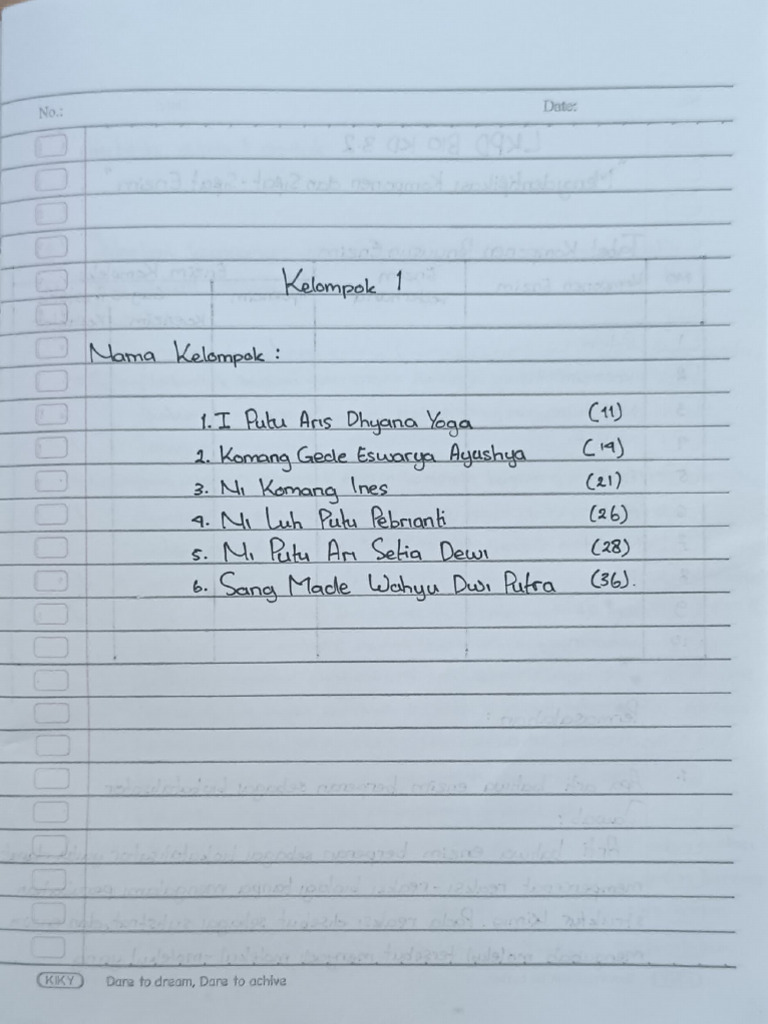 No.:
Date:
Kelompok 1
Nama Kelompok :
1. I Putu Aris Dhyana Yoga (11)
2. Komang Gede Eswarya Ayashya (19)
3. Ni Komang Ines (21)
4. Ni Luh Putu Pebrianti (26)
5. Ni Putu Ari Setia Dewi (28)
6. Sang Made Wahyu Dwi Putra (36).
KIKY Dare to dream, Dare to achive